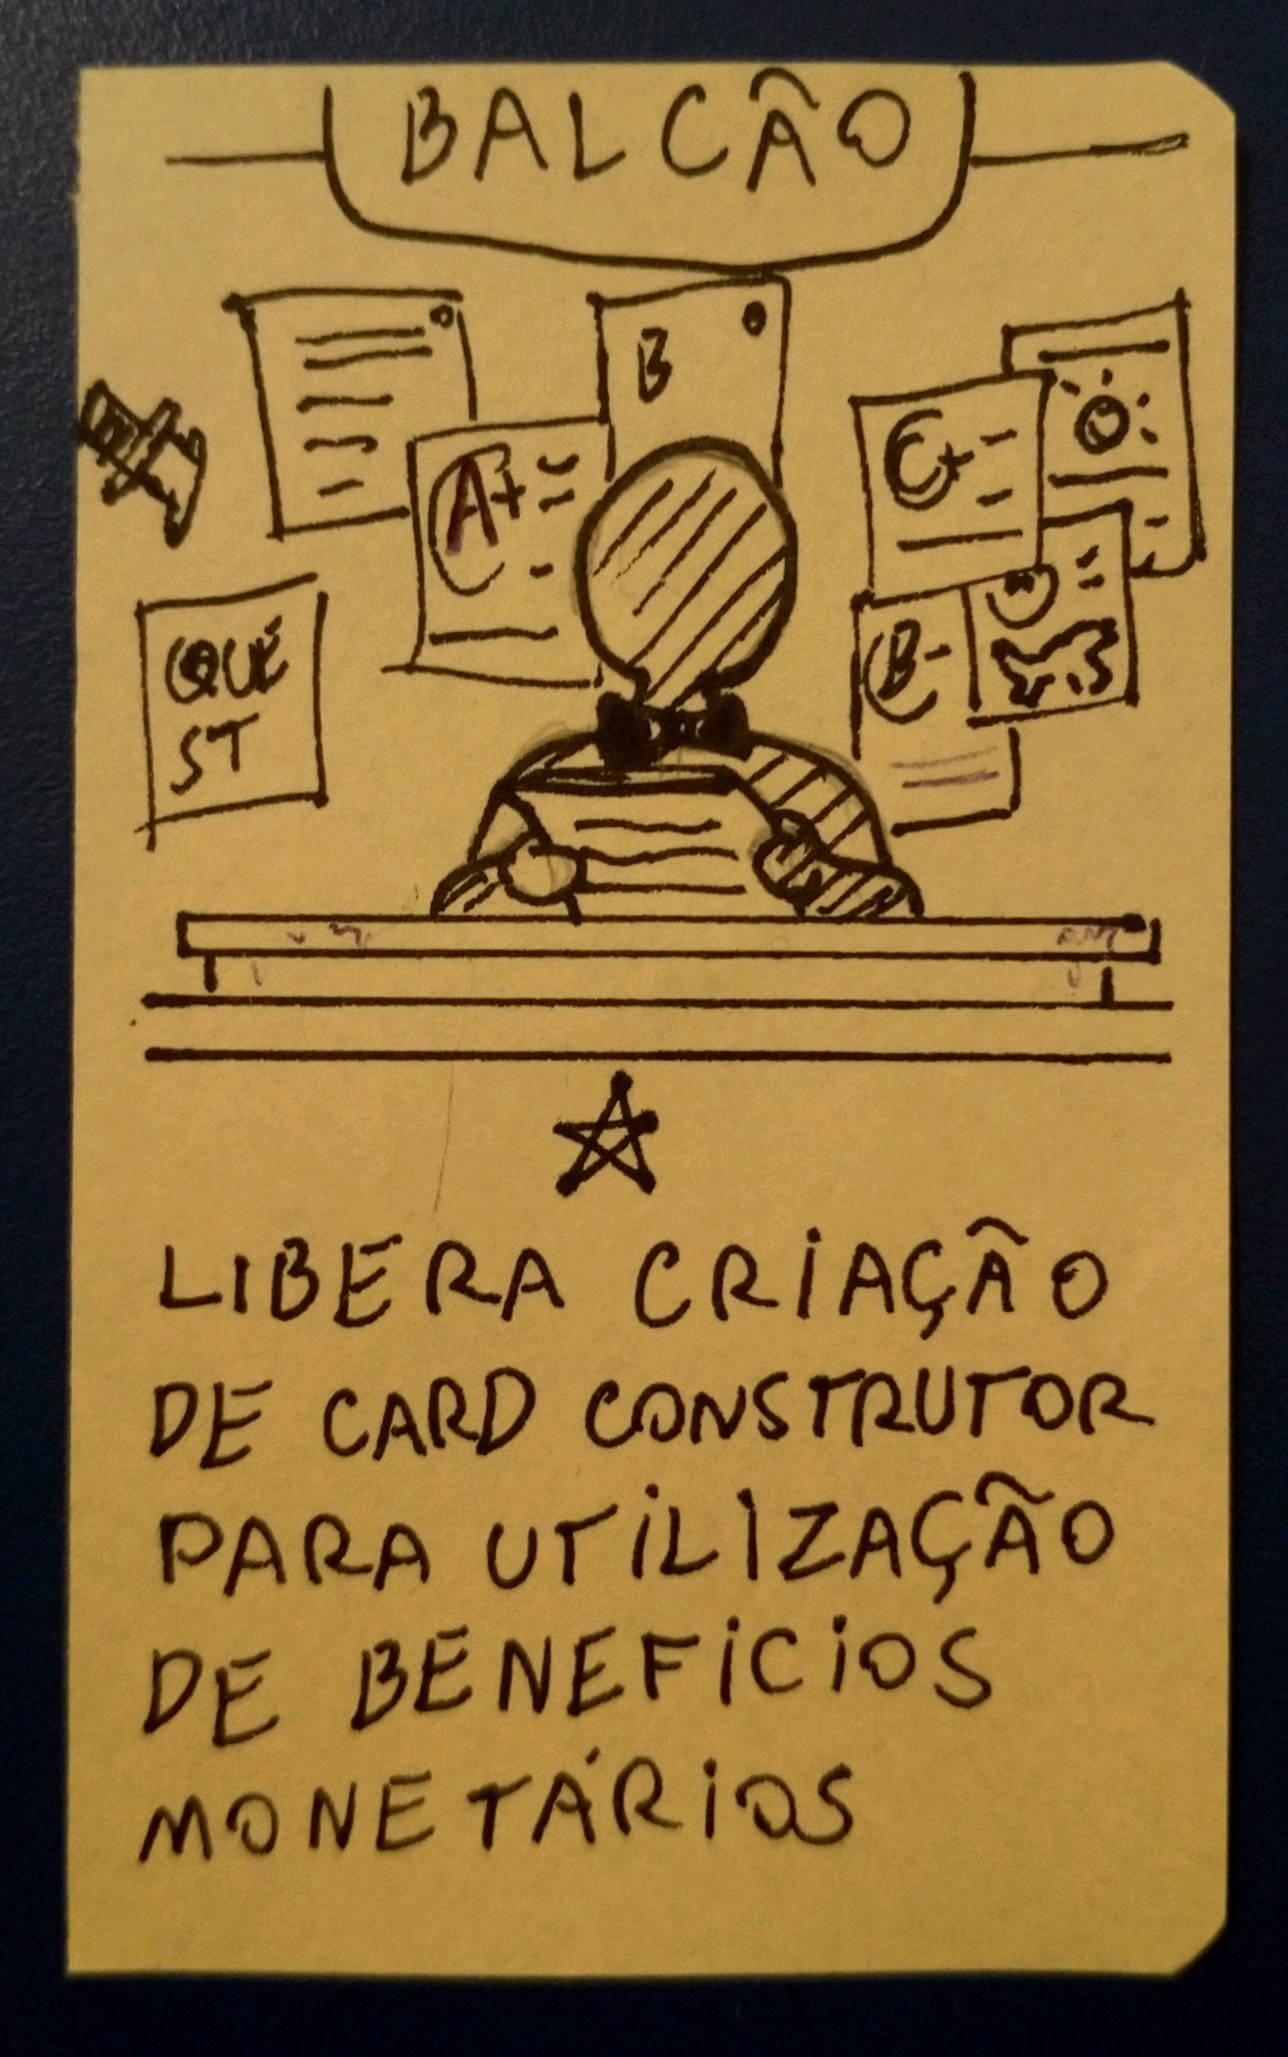 BALCÃO
B
A+
C+
B-
QUE
ST
LIBERA CRIAÇÃO
DE CARD CONSTRUTOR
PARA UTILIZAÇÃO
DE BENEFICIOS
MONETÁRIOS